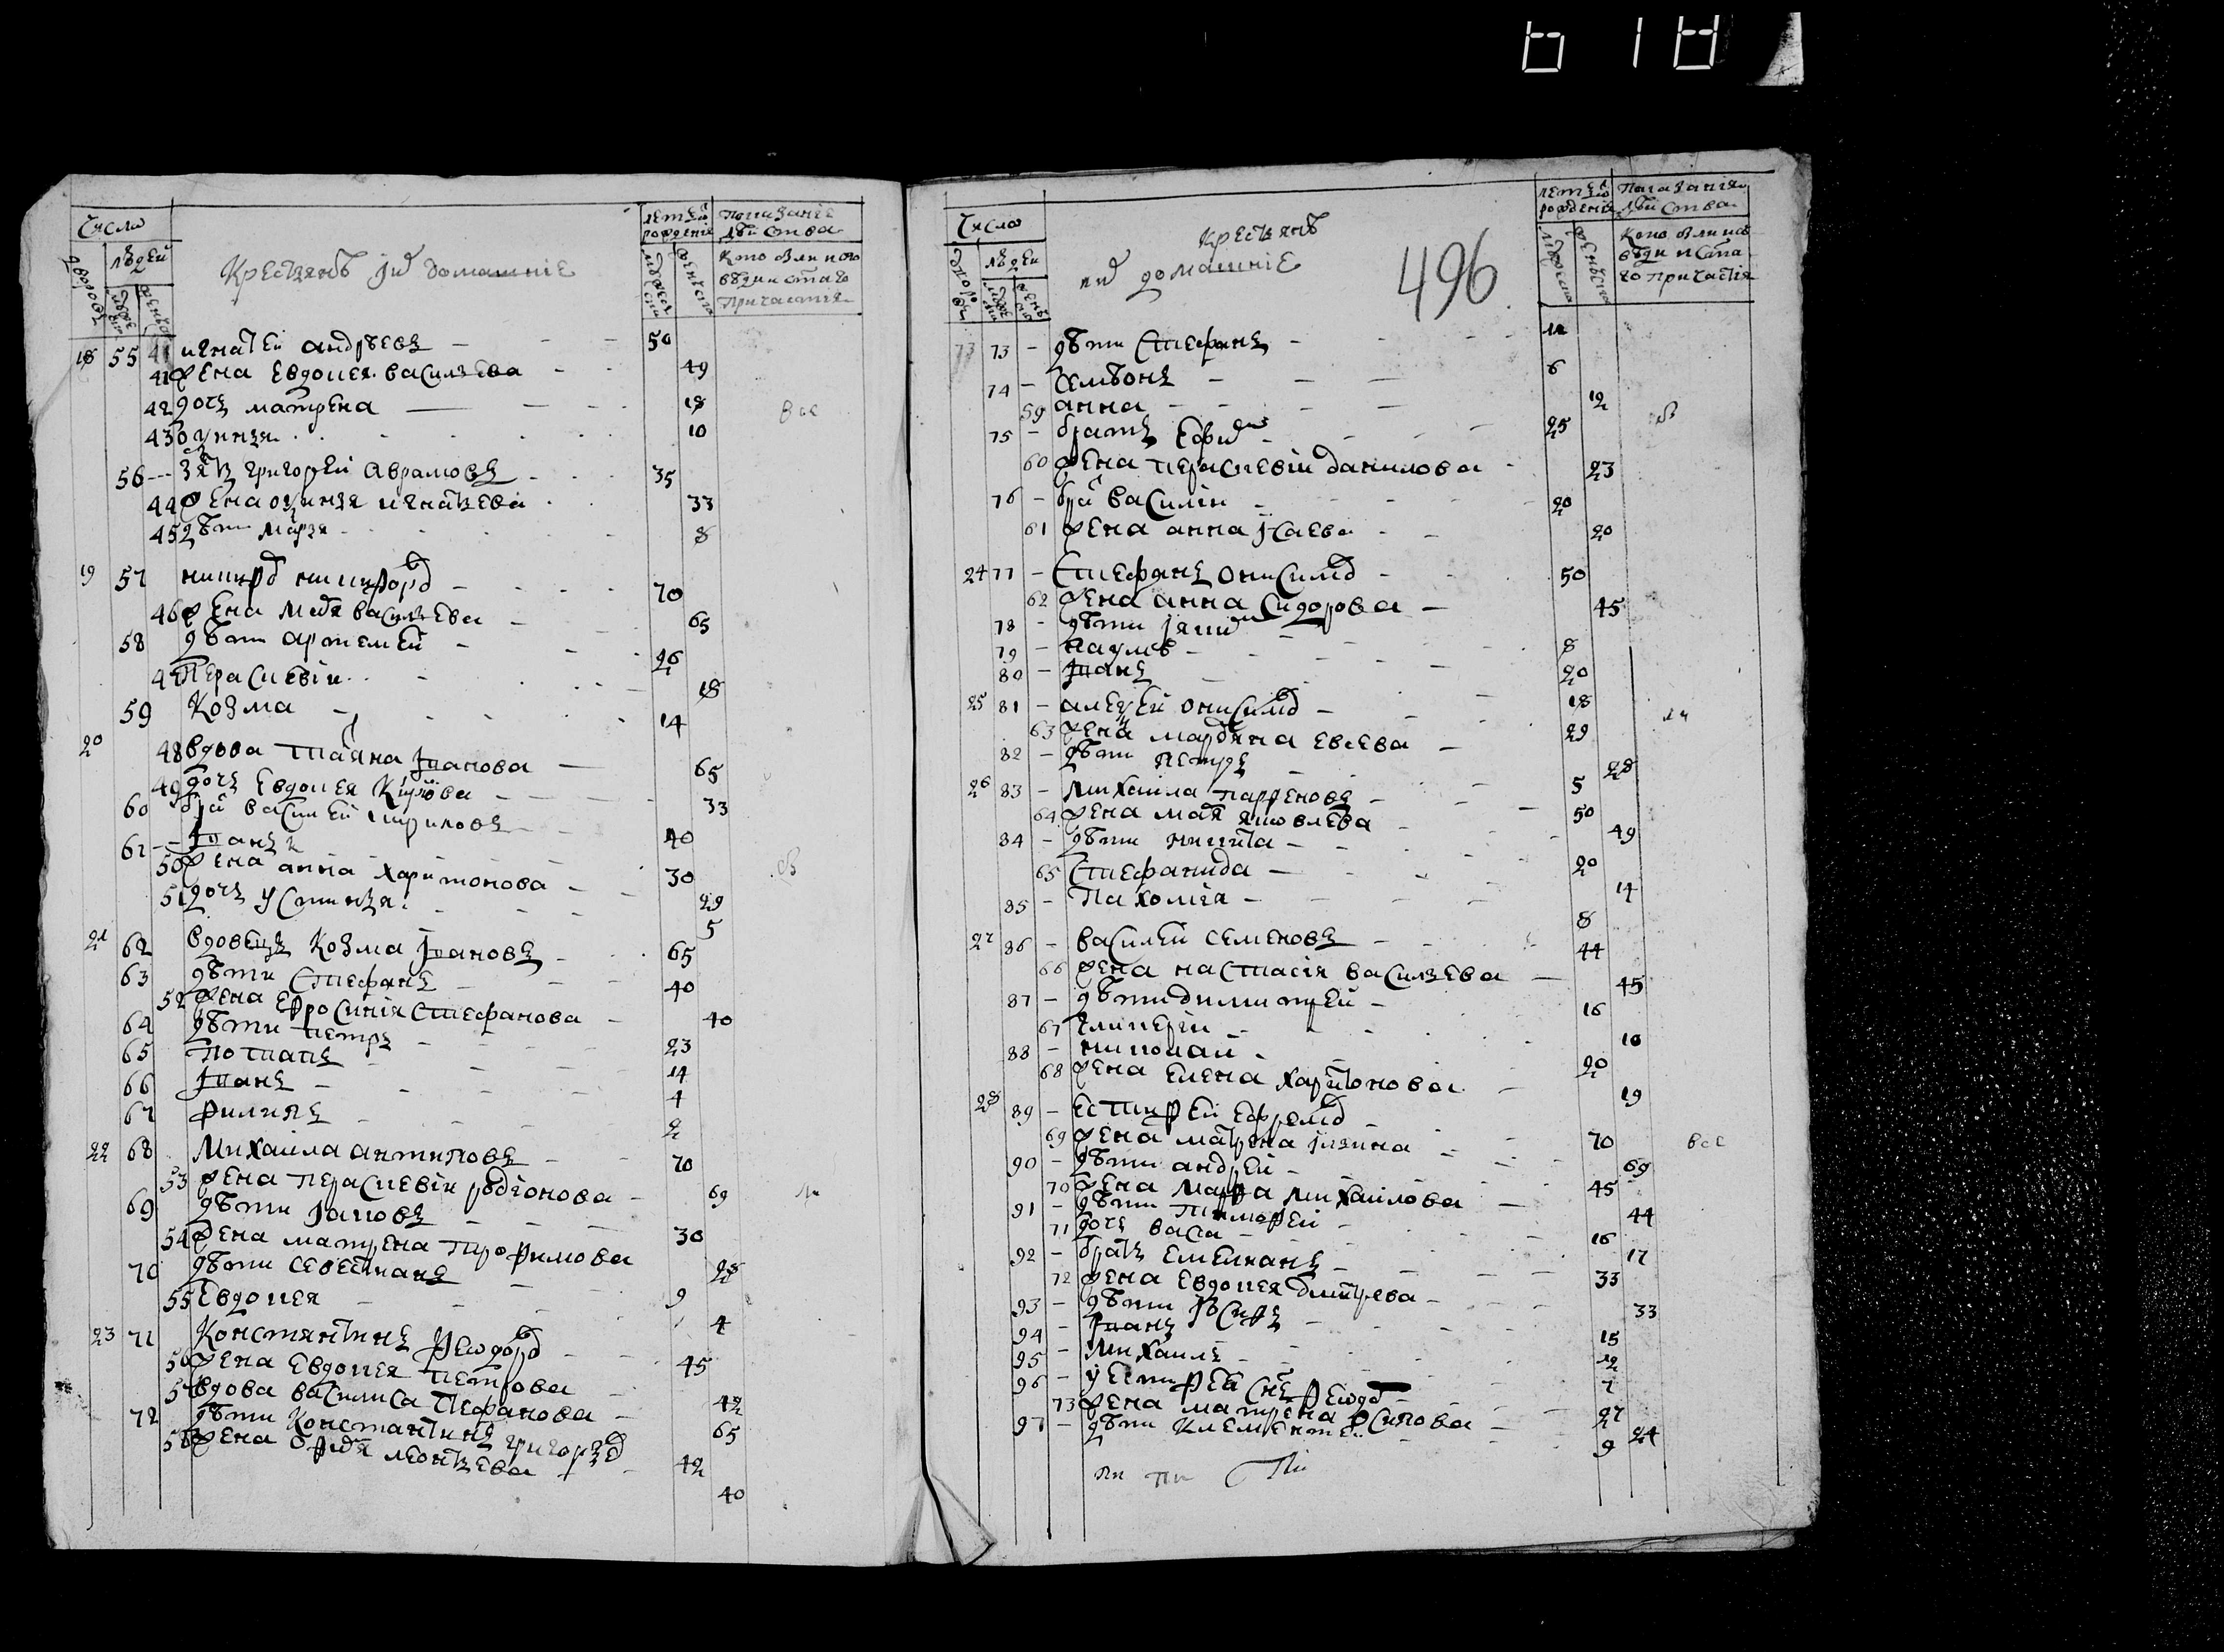 число
людей
дворовъ
мужеска
женска
крестьянъ и ихъ домашние
летъ от рождения
мужеска
женска
показание действа
кто были исповеди и святаго причастия
18 55 41 игнатей андрѣевъ 50
41 жена евдокея васильева 49
42 дочь матрена 18 все
43 оуинья 10
56 зять григорей аврамовъ 35
44 жена оуинья игнатьева 33
45 дѣти марья 8
19 57 никифоръ никифоровъ 70
46 жена марья васильева 65
58 дѣти артемей 26
47 перасковия 18
59 козма 14
20 48 вдова татьяна иванова 65
49 дочь евдокея кирилова 33
60 братъ василей кирилов 40
61 иванъ 30
50 жена анна харитонова 29
51 дочь устинья 5
21 62 вдовецъ козма ивановъ 65
63 дѣти стефанъ 40
52 жена ефросиния стефанова 40
64 дѣти петръ 23
65 потапъ 14
66 иванъ 4
67 филипъ 2
22 68 михаила антиповъ 70
53 жена перасковия родионова 69
69 дѣти іаковъ 30
54 жена матрена трофимова 28
70 дѣти севестианъ 9
55 евдокея 4
23 71 константинъ феодоровъ 45
56 жена евдокея петрова 42
57 вдова василиса стефанова 65
72 дѣти константинъ григорьевъ 42
58 жена леонтьева 40
число
людей
крестьянъ
ихъ домашние
496
летъ от рождения
показания действа
кто были исповеди и святаго причастия
73 73 дѣти стефанъ
74 семѣонъ 6
59 анна 12
75 братъ ефимъ 25
60 жена перасковия данилова 23
76 братъ василии 20
61 жена анна исаева 20
24 77 стефанъ онисимовъ 50
62 жена анна сидорова 45
78 дѣти іакимъ 8
79 наумъ 20
80 иванъ 18
25 81 алексей онисимовъ 29
63 жена марьяна евсева 28
82 дѣти петръ 5
26 83 михаила парфеновъ 50
64 жена марья яковлева 49
84 дѣти никита 20
65 стефанида 14
85 пахомия 8
27 86 василей семеновъ 44
66 жена настасия васильева 45
87 дѣти димитрей 16
67 гликерия 10
88 николай 20
68 жена елена харитонова 19
28 89 естифей ефремовъ 70 все
69 жена матрена ильина 69
90 дѣти андрей 45
70 жена марфа михаилова 44
91 дѣти тимофей 16
71 дочь васа 17
92 братъ емелианъ 33
72 жена евдокея дмитрева 33
93 дѣти иосифъ 15
94 иванъ 12
95 михаилъ 7
96 у естифея сынъ феодоръ 27
73 жена матрена осипова 24
97 дѣти клементей 9